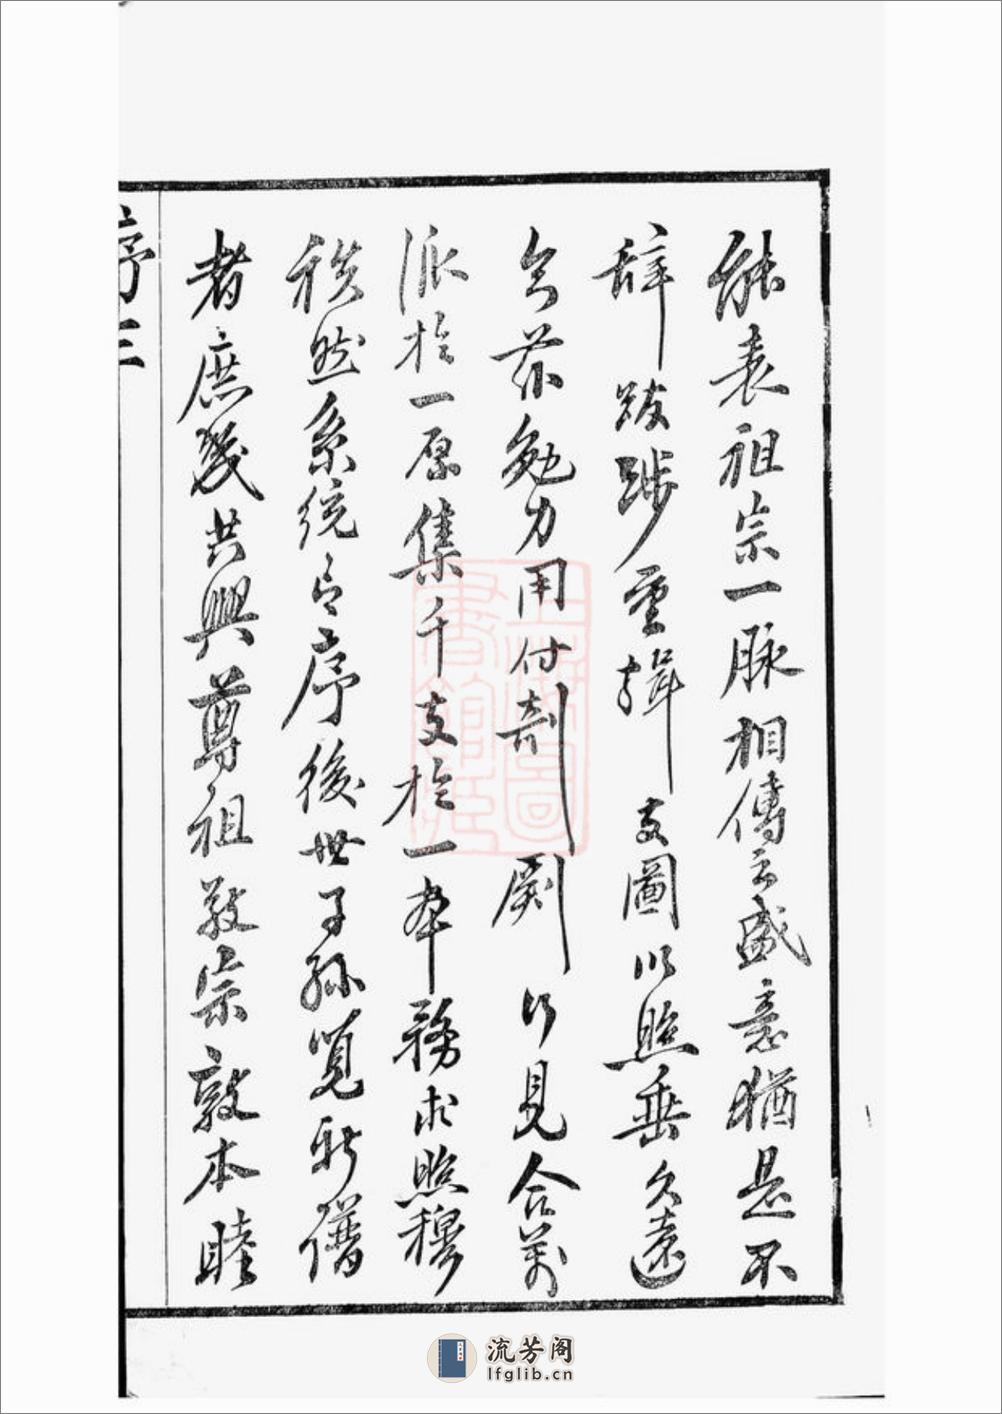 能表祖宗一脉相傳之盛意猶是不
辞跋涉重緝支圖以照垂久遠
今茲勉力用付剞劂行見合萬
派於一原集千支於一本務求照穆
秩然系統有序後世子孫覽斯譜
者庶幾共興尊祖敬宗敦本睦
序 三
流芳阁
lfglib.cn